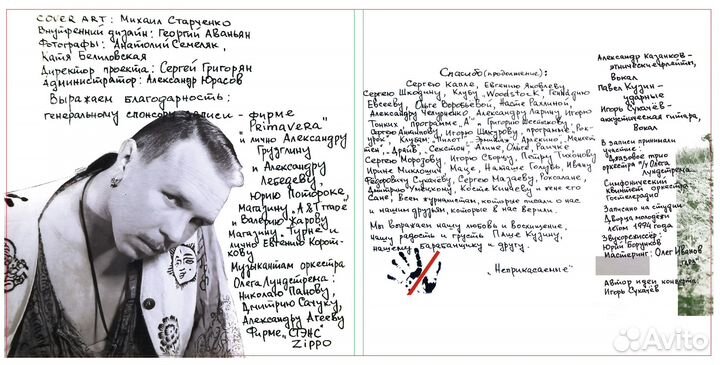 COVER ART: Михаил Старченко
Внутренний дизайн: Георгий Аваньян
Фотографы: Анатолий Семеляк,
Катя Белиловская
Директор проекта: Сергей Григорян
Администратор: Александр Юрасов
Выражаем благодарность:
генеральному спонсору записи - фирме
"PRIMAVERA"
и лично Александру
Грузглину
и Александру
Лебедеву,
Юрию Потороке,
Магазину "A&T Trade"
и Валерию Харову
Магазину "Турне" и
лично Евгению Корот-
кову
Музыкантам оркестра
Олега Лундстрема:
Николаю Панову,
Дмитрию Сачуку,
Александру Агееву
Фирме "СТЭНС"
ZIPPO
Спасибо (продолжение):
Сергею Каплё, Евгению Яковлеву
Сергею Шкодину, Клубу "Woodstock", Геннадию
Евсееву, Ольге Воробьёвой, Насте Рахлиной,
Александру Чепурненко, Александру Ларину Игорю
Тонких, программе "А" и Григорию
Сергею Игорю Шкурову, программе "Рок-
урок", Клубам: "Пилот", "Эрмитаж", Арлекино, Манхет
тен", "Драйв", "Секстон", Алине, Ольге, Раичке
Сергею Морозову, Игорю Петру Тихонову
Ирине Миклошич, Маце, Наташе Голубь Ивану
Федоровичу Сукачёву, Сергею Мазаеву, Роксалане,
Дмитрию Умецкому, Косте Кинчеву и жене его
Сане, Всем журналистам, которые писали о нас
и нашим друзьям, которые в нас верили.
Мы выражаем нашу любовь и восхищение,
нашу радость и грусть Паше Кузину,
нашему барабанщику и другу.
"Неприкасаемые"
Александр Казанков -
этнические флейты,
вокал
Павел Кузин -
ударные
Игорь Сукачёв -
акустическая гитара,
вокал
В записи принимали
участие:
Джазовое трио
оркестра п/у Олега
Лундстрема
Симфонический
ансамбль оркестра
Гостелерадио
Записано на студии
Дворца молодёжи
летом 1994 года
Звукорежиссёр:
Юрий Богданов
Мастеринг: Олег Иванов
Автор идеи конверта:
Игорь Сукачёв
Avito